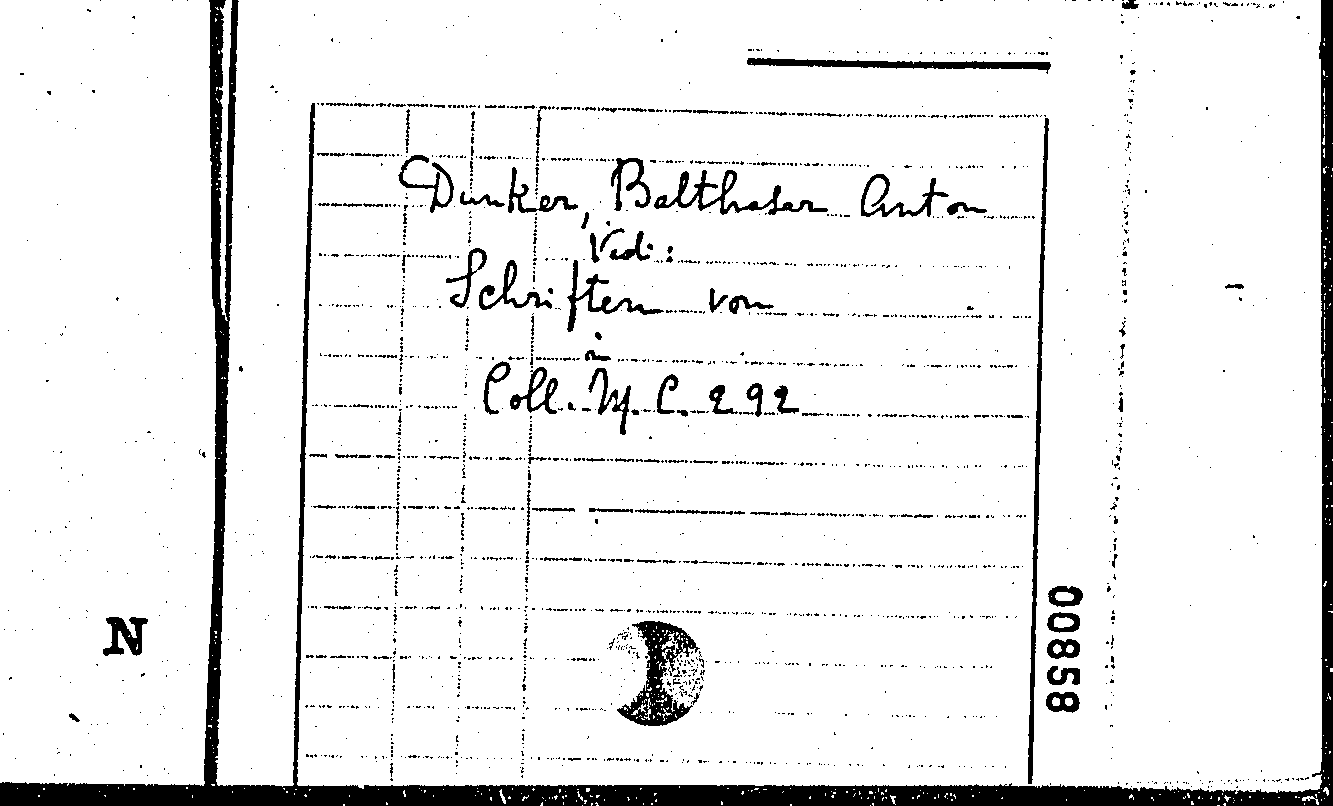 Dunker, Balthasar Anton
Vedi:
Schriften von
in
Coll. M. C. 292
N
00858